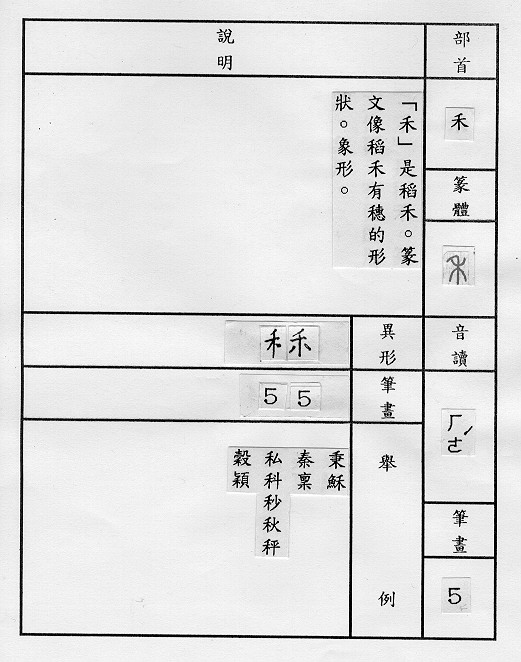 部首
禾
篆體
音讀
ㄏㄜˊ
筆畫
5
說明
「禾」是稻禾。篆
文像稻禾有穗的形
狀。象形。
異形
禾
筆畫
5 5
舉例
秉穌
秦稟
私科秒秋秤
穀穎